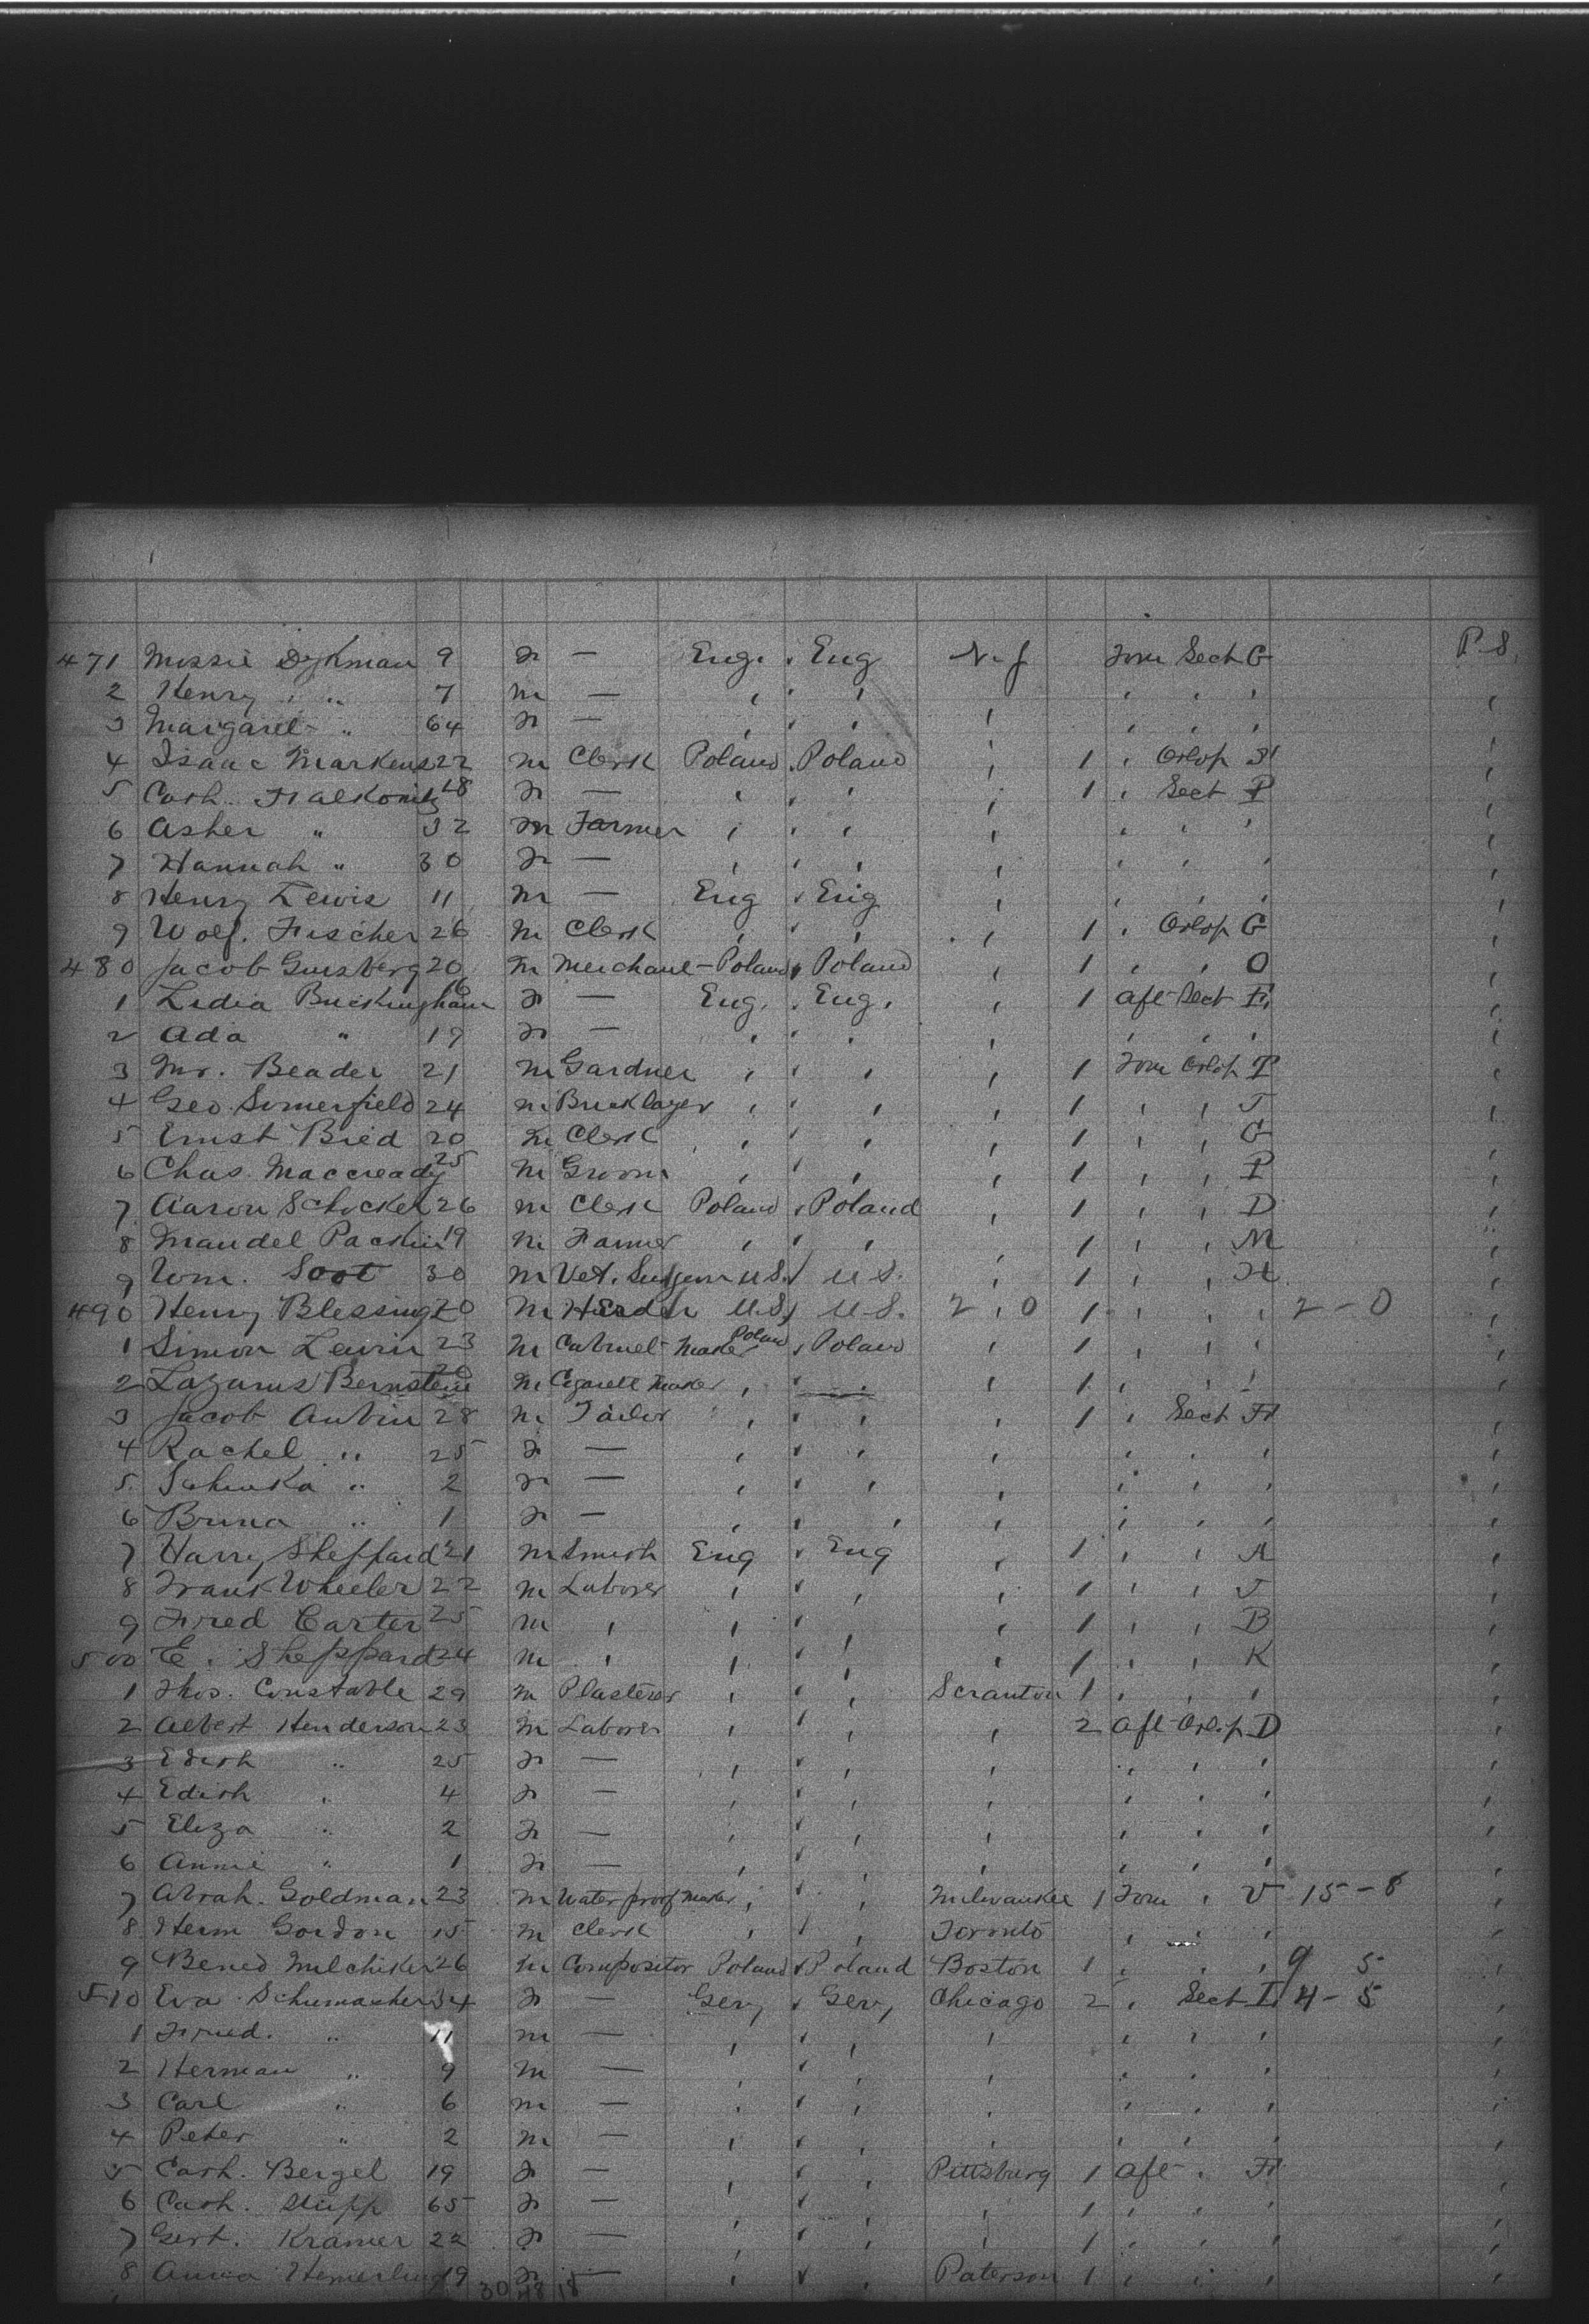 471 Missie Dykman 9 F — Eng. Eng N-J Fow Sect G P.S.
2 Henry " 7 M — " " "
3 Margaret " 64 F — " " "
4 Isaac Markens 22 M Clerk Poland Poland " 1 " Orlop
5 Cath. Fialkonitz 18 F — " " " 1 " Sect P
6 Asher " 32 M Farmer " " "
7 Hannah " 30 F — " " "
8 Henry Lewis 11 M — Eng Eng "
9 Wolf. Fischer 26 M Clerk " " " 1 " Orlop G
480 Jacob Ginsberg 20 M Merchant Poland Poland " 1 " " O
1 Lidia Buckingham 16 F — Eng. Eng. " 1 Aft Sect F
2 Ada " 19 F — " " "
3 Mr. Beader 21 M Gardner " " " 1 Fow Orlop P
4 Geo. Somerfield 24 M Bricklayer " " " 1 " " J
5 Ernst Bied 20 M Clerk " " " 1 " " G
6 Chas. Maccready 25 M Groom " " " 1 " " P
7 Aaron Schocket 26 M Clerk Poland Poland " 1 " " D
8 Mandel Packin 19 M Farmer " " " 1 " " M
9 Wm. Soot 30 M Vet. Surgeon U.S. U.S. " 1 " " H
490 Henry Blessing 20 M U.S. U.S. 2 " 0 1 " " " 2 - 0
1 Simon Lewin 23 M Cabinet Maker Poland Poland " 1 " " "
2 Lazarus Bernstein 20 M Cigarett Maker " " " 1 " " "
3 Jacob Aubin 28 M Tailor " " " 1 " Sect H
4 Rachel " 25 F — " " "
5 " 2 F — " " "
6 Bruna " 1 F — " " "
7 Harry Sheppard 21 M Smith Eng Eng " 1 " " A
8 Frank Wheeler 22 M Laborer " " " 1 " " J
9 Fred Carter 25 M " " " " 1 " " B
500 E. Sheppard 24 M " " " " 1 " " K
1 Thos. Constable 29 M Plasterer " " Scranton 1 " " "
2 Albert Henderson 23 M Laborer " " " 2 Aft Orlop D
3 Edith " 25 F — " " "
4 Edith " 4 F — " " "
5 Eliza " 2 F — " " "
6 Annie " 1 F — " " "
7 Abrah. Goldman 23 M Water proof Maker " " Milwaukee 1 Fow " V 15 - 8
8 Herm Gordon 15 M Clerk " " Toronto " " "
9 Bened Milchiker 26 M Compositor Poland Poland Boston 1 " " " 9 5
510 Eva Schumacher 34 F — Gery Gery Chicago 2 " Sect I 4 - 5
1 Fried. " 11 M — " " "
2 Herman " 9 M — " " "
3 Carl " 6 M — " " "
4 Peter " 2 M — " " "
5 Cath. Bergel 19 F — " " Pittsburg 1 Aft " H
6 Cath. Stupp 65 F — " " " 1 " " "
7 Gert. Kramer 22 F — " " " 1 " " "
8 Anna Hemerling 19 F — " " Paterson 1 " " "
30 48 18